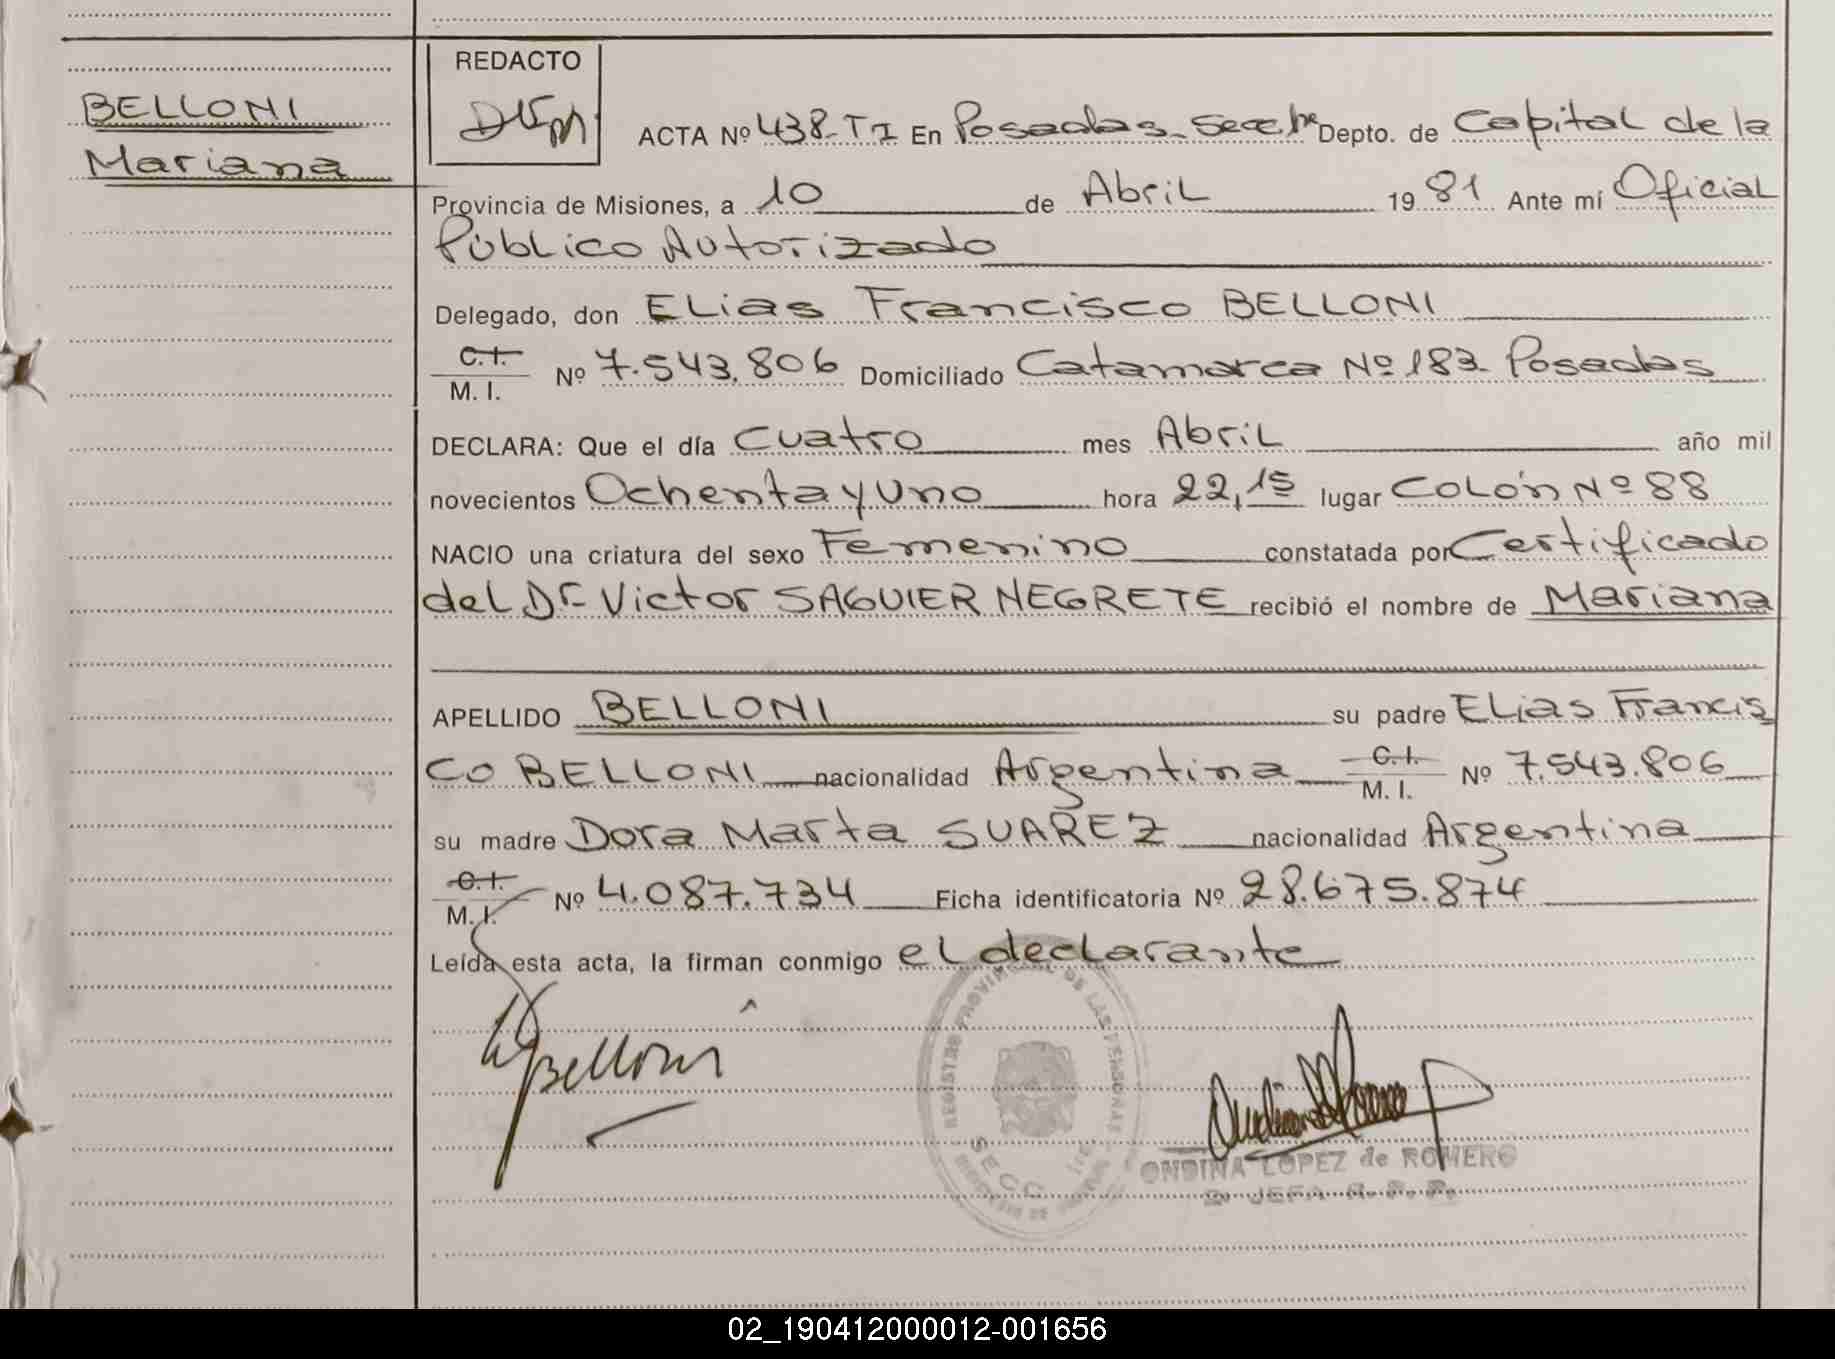 BELLONI
Mariana
REDACTO
ACTA Nº 438-TI En Posadas-Secc 1ra Depto. de Capital de la
Provincia de Misiones, a 10 de Abril 1981 Ante mí Oficial
Público Autorizado
Delegado, don Elias Francisco BELLONI
C.I. M. I. Nº 7.543.806 Domiciliado Catamarca Nº 183 Posadas
DECLARA: Que el día Cuatro mes Abril año mil
novecientos Ochenta y Uno hora 22,15 lugar Colón Nº 88
NACIO una criatura del sexo Femenino constatada por Certificado
del Dr. Victor SAGUIER NEGRETE recibió el nombre de Mariana
APELLIDO BELLONI su padre Elias Francis
co BELLONI nacionalidad Argentina C.I. M. I. Nº 7.543.806
su madre Dora Marta SUAREZ nacionalidad Argentina
C.I. M. I. Nº 4.087.734 Ficha identificatoria Nº 28.675.874
Leída esta acta, la firman conmigo el declarante
Belloni
REGISTRO PROVINCIAL DE LAS PERSONAS
SECC
ONDINA LOPEZ de ROMERO
JEFA R. P. P.
02_190412000012-001656